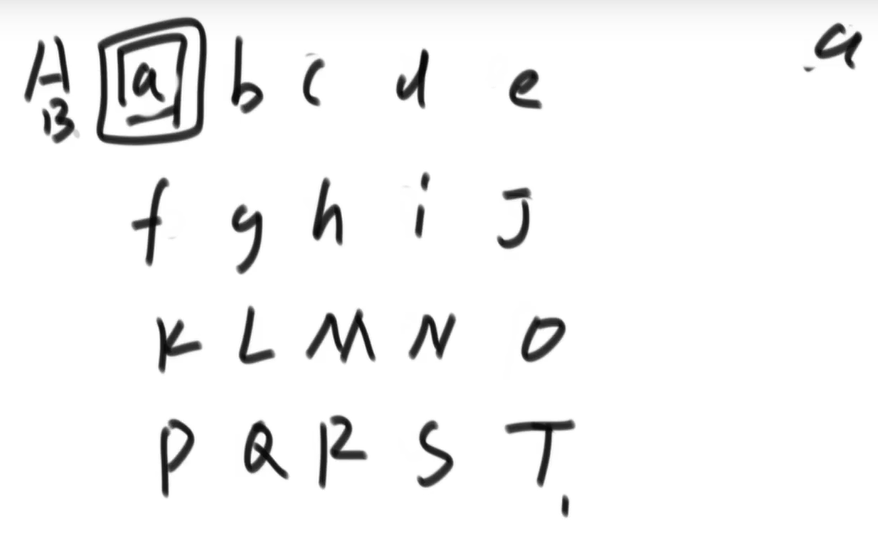 A a b c d e a
B
f g h i J
K L M N O
P Q R S T